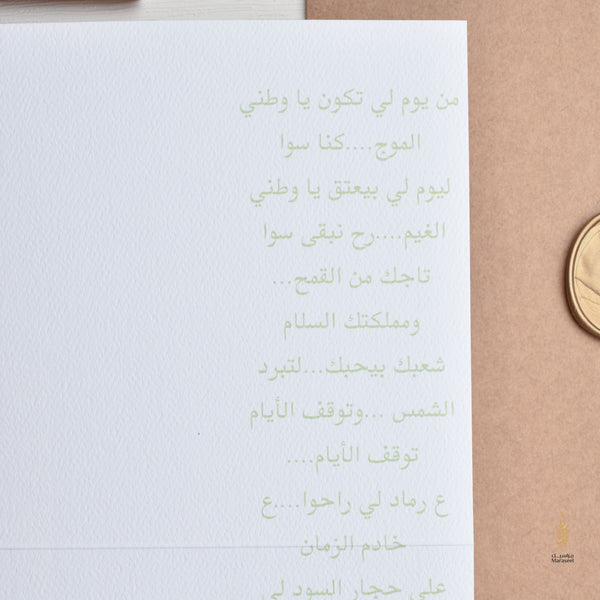 من يوم لي تكون يا وطني
الموج....كنا سوا
ليوم لي بيعتق يا وطني
الغيم....رح نبقى سوا
تاجك من القمح...
ومملكتك السلام
شعبك بيحبك...لتبرد
الشمس ...وتوقف الأيام
توقف الأيام....
ع رماد لي راحوا....ع
خادم الزمان
على حجار السود لي
مراسيل
Maraseel